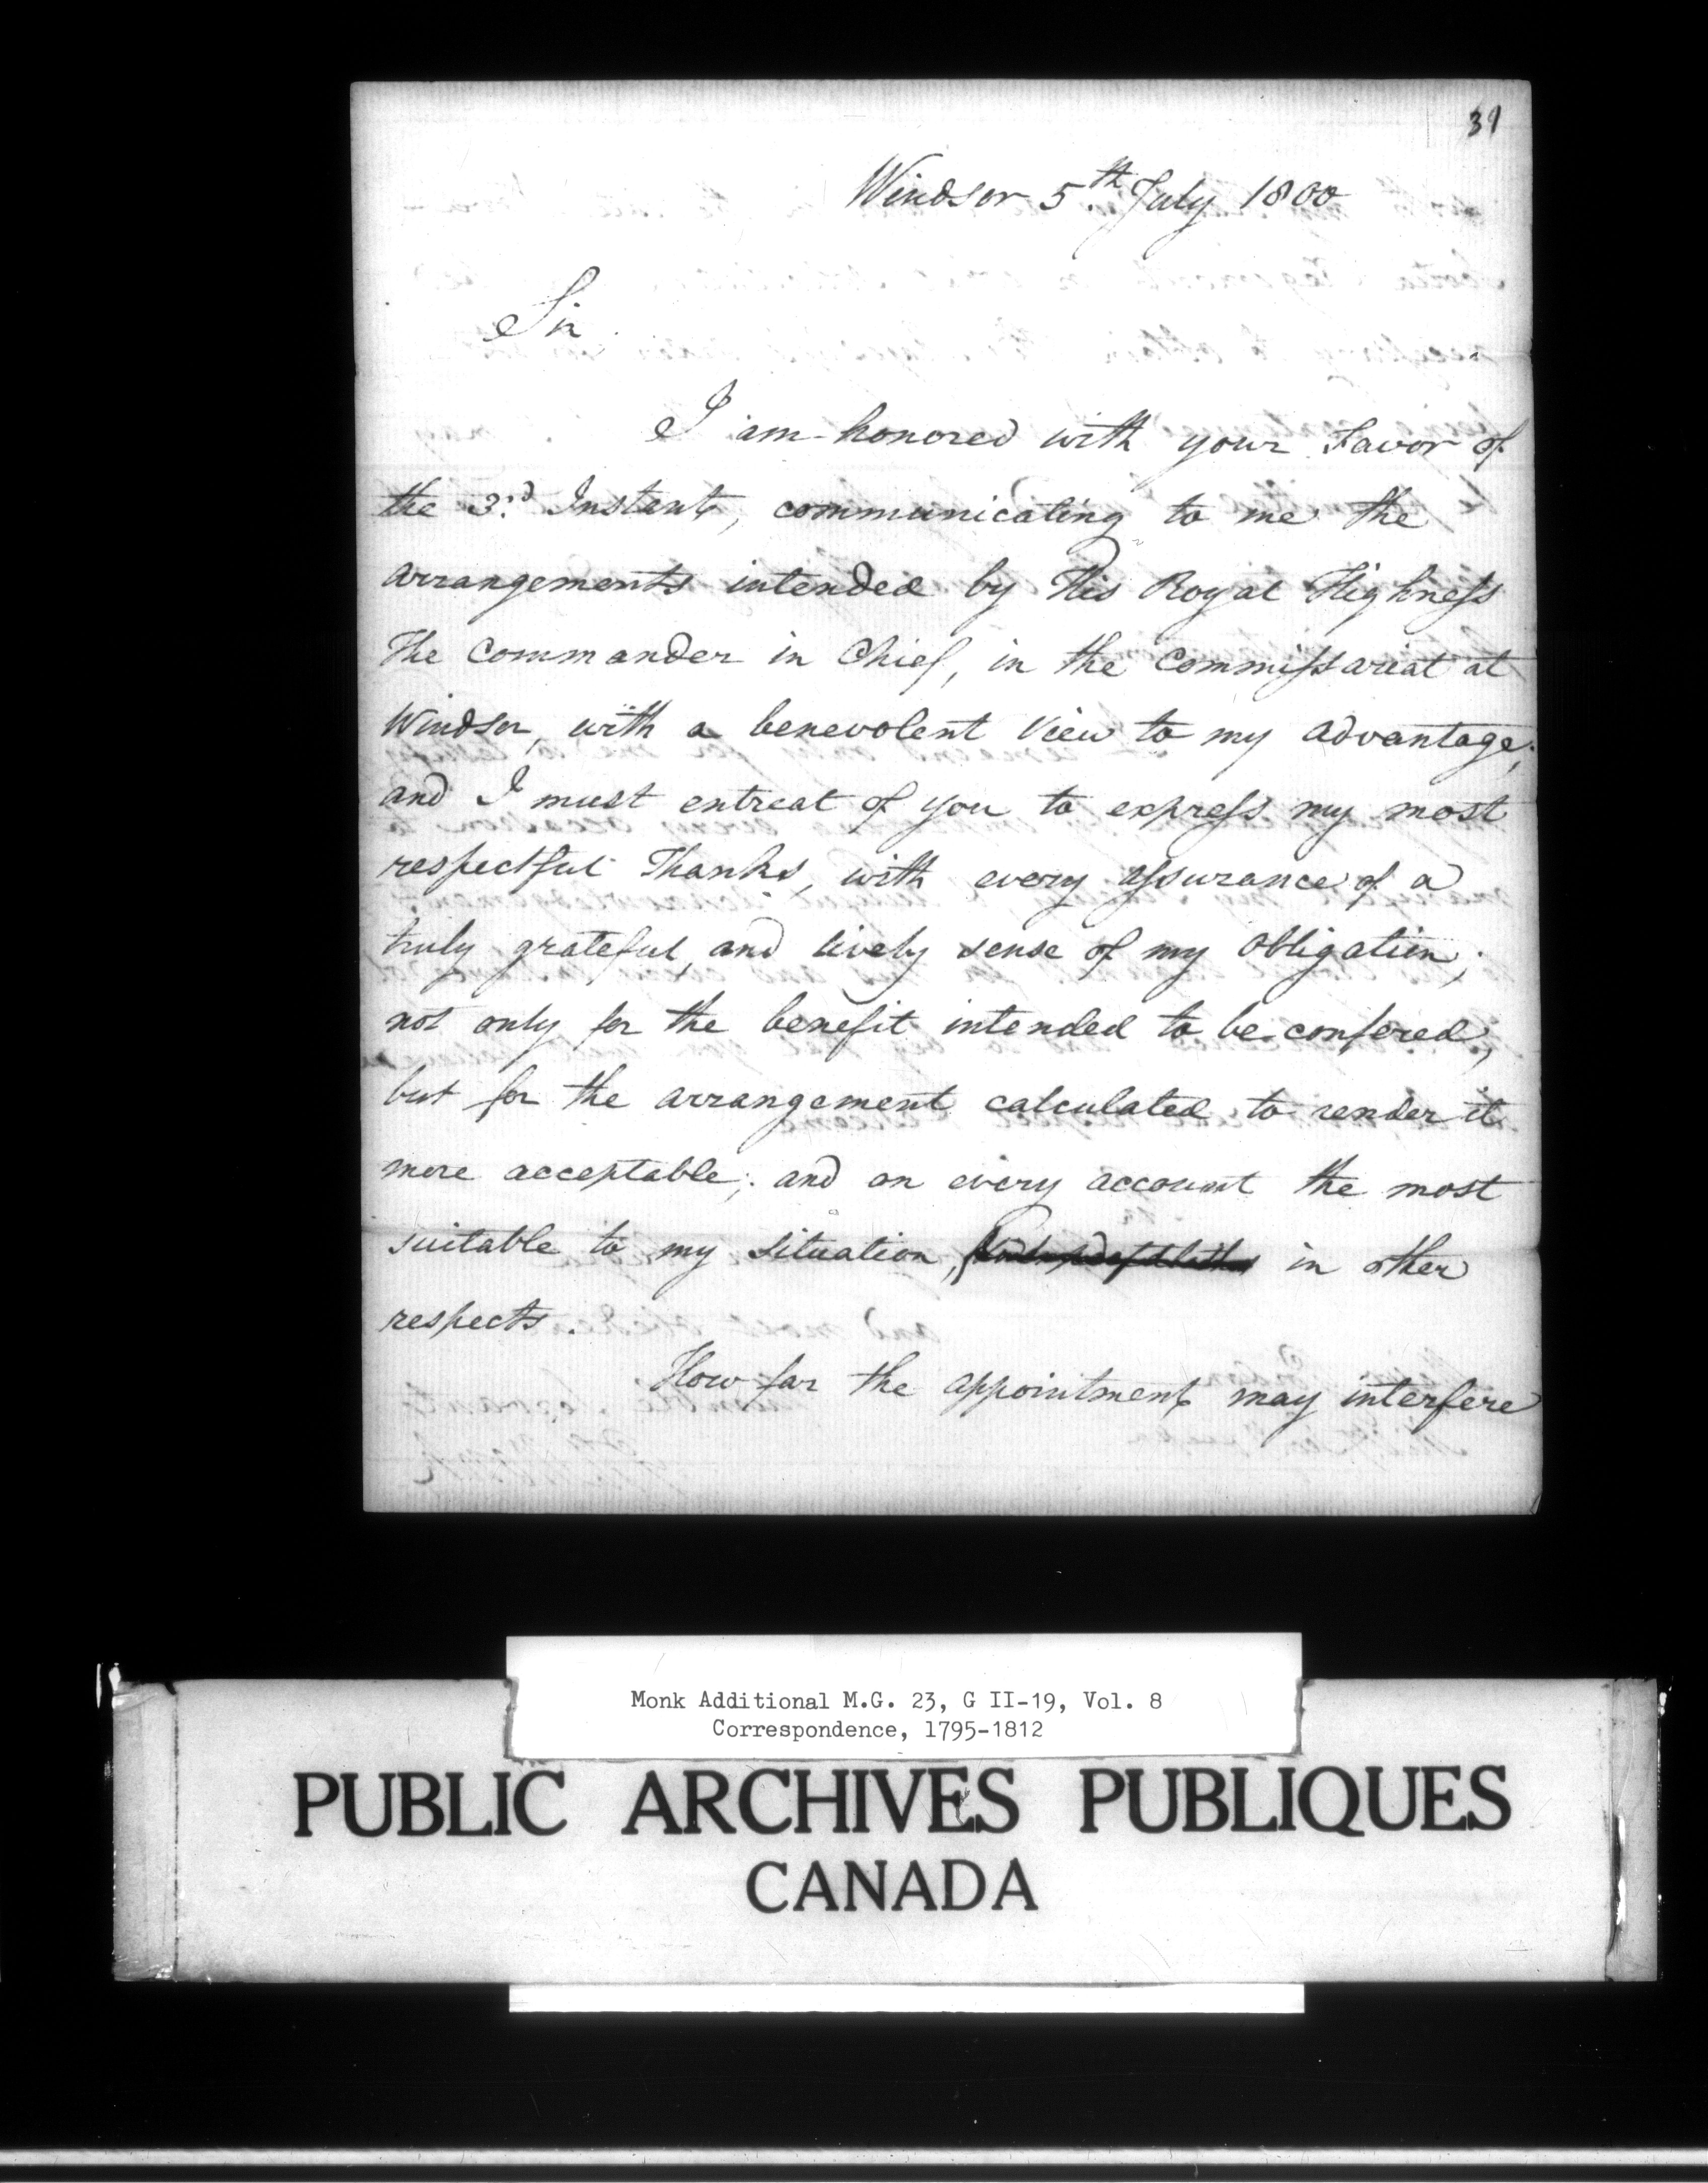 31
Windsor 5th July 1800
Sir
I am honored with your Favor of
the 3rd Instant, communicating to me the
arrangements intended by His Royal Highness
The Commander in Chief, in the Commissariat at
Windsor, with a benevolent View to my advantage;
and I must entreat of you to express my most
respectful Thanks, with every assurance of a
truly grateful, and lively sense of my Obligation;
not only for the benefit intended to be confered,
but for the arrangement calculated to render it
more acceptable; and on every account the most
suitable to my situation, in other
respects.
How far the appointment may interfere
Monk Additional M.G. 23, G II-19, Vol. 8
Correspondence, 1795-1812
PUBLIC ARCHIVES PUBLIQUES
CANADA